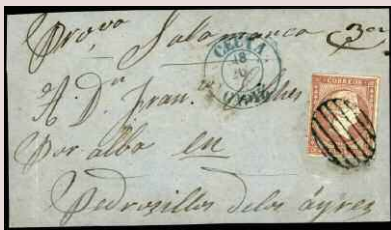 Prova Salamanca
CEUTA
18
A. Dn Fran.
CORREOS
Por alba en
Pedrosillos delos ayres